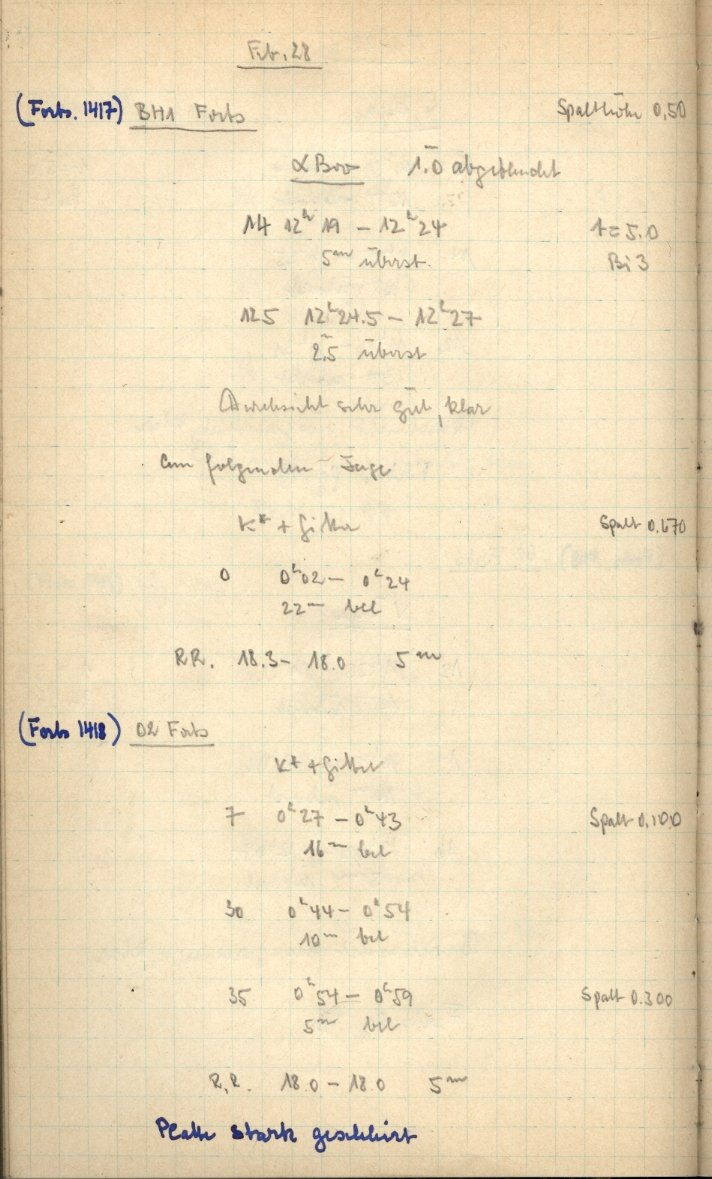 Feb. 28
(Forts. 1417) BH1 Forts Spalthöhe 0,50
α Boo 1.0 abgeblendet
14 12h 19 – 12h 24 t = 5.0
5m überst. Bi 3
125 12h 24.5 – 12h 27
2,5 überst
Durchsicht sehr gut, klar
Am folgenden Tage
K* + Gitter Spalt 0.670
0 0h 02 – 0h 24
22m bel
RR. 18.3 – 18.0 5m
(Forts 1418) 02 Forts
K* + Gitter
7 0h 27 – 0h 43 Spalt 0,100
16m bel
30 0h 44 – 0h 54
10m bel
35 0h 54 – 0h 59 Spalt 0.300
5m bel
R.R. 18.0 – 18.0 5m
Platte stark